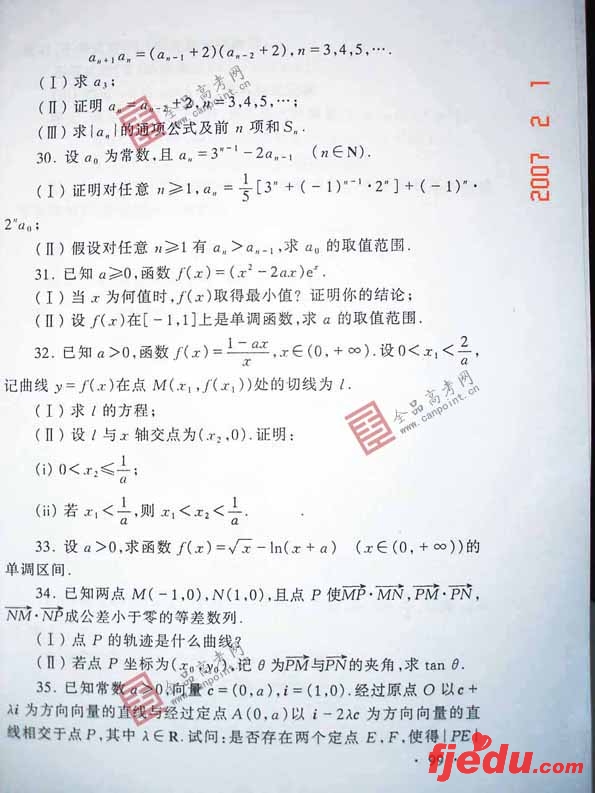 aₙ₊₁aₙ=(aₙ₋₁+2)(aₙ₋₂+2),n=3,4,5,⋯.
(Ⅰ)求 a₃;
(Ⅱ)证明 aₙ=aₙ₋₂+2,n=3,4,5,⋯;
(Ⅲ)求{aₙ}的通项公式及前 n 项和Sₙ.
30. 设 a₀ 为常数,且 aₙ=3ⁿ⁻¹-2aₙ₋₁ (n∈N).
(Ⅰ)证明对任意 n≥1,aₙ=1/5[3ⁿ+(-1)ⁿ⁻¹·2ⁿ]+(-1)ⁿ·
2ⁿa₀;
(Ⅱ)假设对任意 n≥1 有 aₙ>aₙ₋₁,求 a₀ 的取值范围.
31. 已知 a≥0,函数 f(x)=(x²-2ax)eˣ.
(Ⅰ)当 x 为何值时,f(x)取得最小值? 证明你的结论;
(Ⅱ)设 f(x)在[-1,1]上是单调函数,求 a 的取值范围.
32. 已知 a>0,函数 f(x)=(1-ax)/x,x∈(0,+∞).设 0<x₁<2/a,
记曲线 y=f(x)在点 M(x₁,f(x₁))处的切线为 l.
(Ⅰ)求 l 的方程;
(Ⅱ)设 l 与 x 轴交点为(x₂,0).证明:
(i) 0<x₂≤1/a;
(ii) 若 x₁<1/a,则 x₁<x₂<1/a.
33. 设 a>0,求函数 f(x)=√x-ln(x+a) (x∈(0,+∞))的
单调区间.
34. 已知两点 M(-1,0),N(1,0),且点 P 使MP·MN,PM·PN,
NM·NP成公差小于零的等差数列.
(Ⅰ)点 P 的轨迹是什么曲线?
(Ⅱ)若点 P 坐标为(x₀,y₀),记 θ 为PM与PN的夹角,求 tan θ.
35. 已知常数 a>0,向量 c=(0,a),i=(1,0).经过原点 O 以c+
λi 为方向向量的直线与经过定点 A(0,a)以 i-2λc 为方向向量的直
线相交于点 P,其中 λ∈R.试问:是否存在两个定点 E,F,使得|PE|
·99·
全品高考网
www.canpoint.cn
全品高考网
www.canpoint.cn
全品高考网
www.canpoint.cn
2007 2 1
fjedu.com